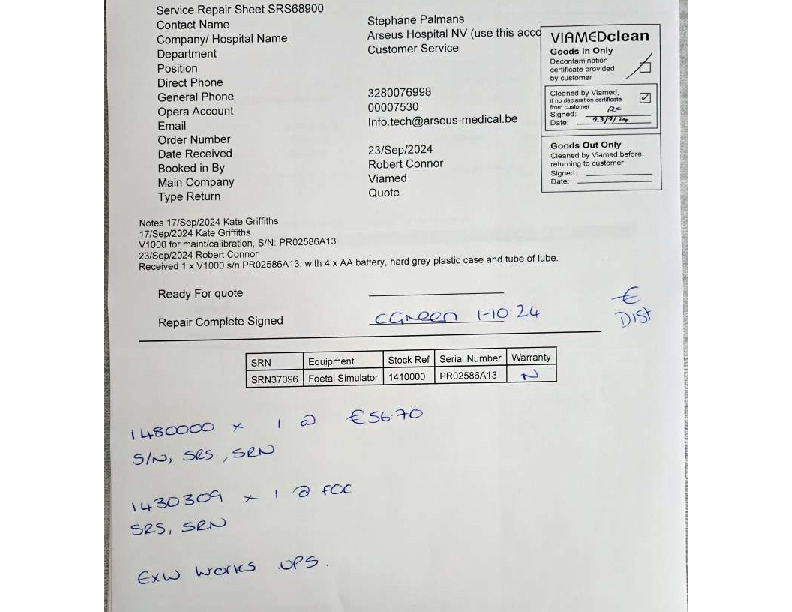 Service Repair Sheet SRS68900
Contact Name Stephane Palmans
Company/ Hospital Name Arseus Hospital NV (use this acco
Department Customer Service
Position
Direct Phone
General Phone 3280076998
Opera Account 00007530
Email Info.tech@arseus-medical.be
Order Number
Date Received 23/Sep/2024
Booked in By Robert Connor
Main Company Viamed
Type Return Quote
VIAMEDclean
Goods In Only
Decontamination
certificate provided
by customer
Cleaned by Viamed,
if no decontamination certificate
from customer
Signed: RC
Date: 23/9/24
Goods Out Only
Cleaned by Viamed before
returning to customer
Signed:
Date:
Notes 17/Sep/2024 Kate Griffiths
17/Sep/2024 Kate Griffiths
V1000 for maint/calibration, S/N: PR02586A13
23/Sep/2024 Robert Connor
Received 1 x V1000 s/n PR02586A13, with 4 x AA battery, hard grey plastic case and tube of lube.
Ready For quote
Repair Complete Signed CGreen 1-10-24
€
Dist
SRN Equipment Stock Ref Serial Number Warranty
SRN37096 Foetal Simulator 1410000 PR02586A13 N
1480000 x 1 @ €56.70
S/N, SRS, SRN
1430309 x 1 @ FOC
SRS, SRN
Exw Works UPS.